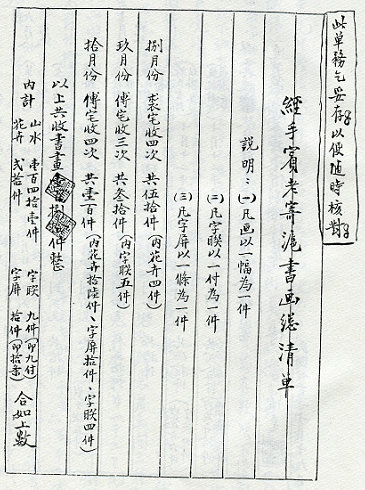 此單務乞妥存以便随時核對
經手賓老寄滬書画總清单
說明：(一)凡画以一幅為一件
(二)凡字聯以一付為一件
(三)凡字屏以一條為一件
捌月份 裘宅收四次 共伍拾件（內花卉四件）
玖月份 傅宅收三次 共叁拾件（內字聯五件）
拾月份 傅宅收四次 共壹百件（內花卉拾陸件、字屏拾件、字聯四件）
以上共收書畫壹百捌拾件整
內計 山水 壹百四拾壹件 字聯 九件（即九付）
花卉 貳拾件 字屏 拾件（即拾条） 合如上數